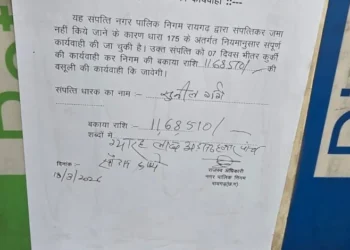 कार्यवाही ::---
यह संपत्ति नगर पालिक निगम रायगढ़ द्वारा संपत्तिकर जमा
नहीं किये जाने के कारण धारा 175 के अंतर्गत नियमानुसार संपूर्ण
कार्यवाही की जा चुकी है। उक्त संपत्ति को 07 दिवस भीतर कुर्की
की कार्यवाही कर निगम की बकाया राशि 11,68,510/- की
वसूली की कार्यवाही कि जावेगी।
संपत्ति धारक का नाम :-- सुनील
बकाया राशि 11,68,510/-
शब्दों में ग्यारह लाख अड़सठ हजार पांच
सौ दस रुपये
दिनांक :-
13/3/2026
राजस्व अधिकारी
नगर पालिक निगम
रायगढ़(छ.ग)